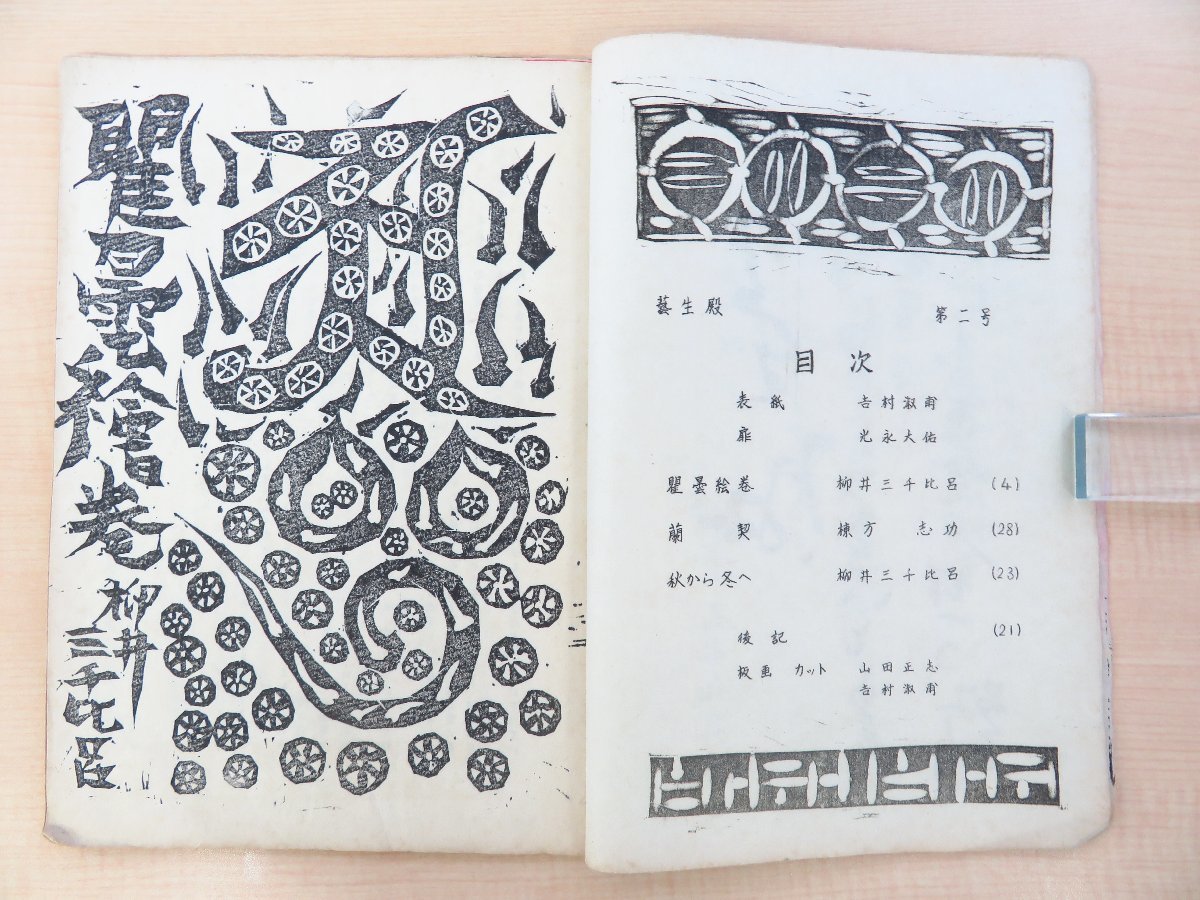 瞿曇繪巻
柳井三千比呂
藝生殿 第二号
目次
表紙 吉村淑甫
扉 光永大佑
瞿曇絵巻 柳井三千比呂 (4)
蘭契 棟方志功 (28)
秋から冬へ 柳井三千比呂 (23)
後記 (21)
板画 カット 山田正志
吉村淑甫